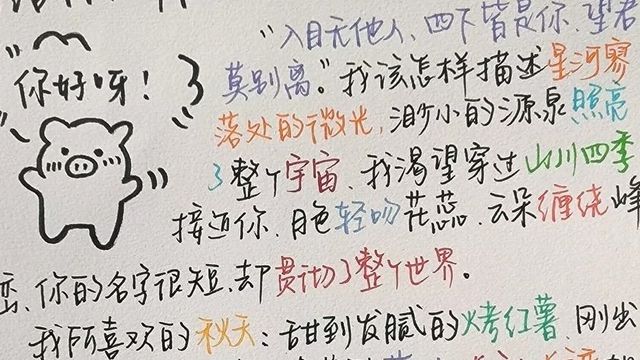 你好呀!
“入目无他人,四下皆是你、望君
莫别离。”我该怎样描述星河寥
落处的微光,渺小的源泉照亮
了整个宇宙、我渴望穿过山川四季
接近你、月色轻吻花蕊、云朵缠绕峰
峦、你的名字很短、却贯彻了整个世界。
我所喜欢的秋天:甜到发腻的烤红薯、刚出